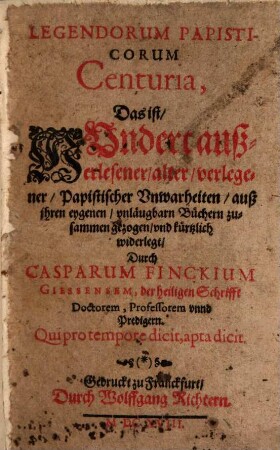 LEGENDORUM PAPISTI-
CORUM
Centuria,
Das ist/
Hundert auß-
erlesener/alter/verlege-
ner/Papistischer Vnwarheiten/auß
ihren eygenen/vnläugbarn Büchern zu-
sammen gezogen/vnd kürtzlich
widerlegt/
Durch
CASPARUM FINCKIUM
GIESSENSEM, der heiligen Schrifft
Doctorem, Professorem vnnd
Predigern.
Qui pro tempore dicit, apta dicit.
(*)
Gedruckt zu Franckfurt/
Durch Wolffgang Richtern.